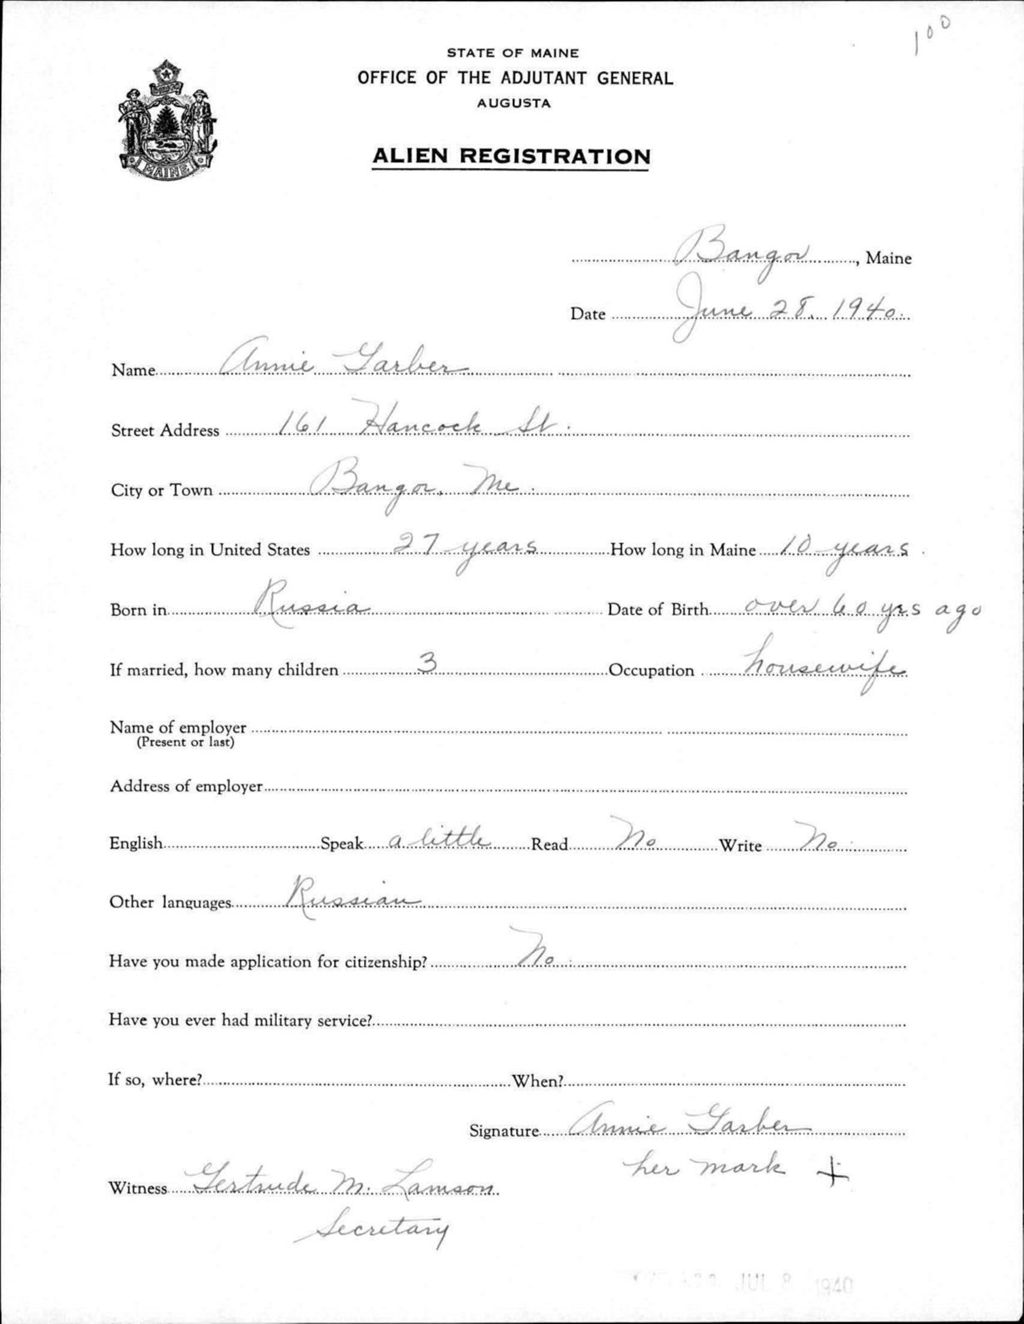 100
STATE OF MAINE
OFFICE OF THE ADJUTANT GENERAL
AUGUSTA
MAINE
ALIEN REGISTRATION
Bangor, Maine
Date June 28, 1940.
Name Annie Garber
Street Address 161 Hancock St.
City or Town Bangor, Me.
How long in United States 27 years How long in Maine 10 years.
Born in Russia Date of Birth over 60 yrs ago
If married, how many children 3 Occupation housewife
Name of employer
(Present or last)
Address of employer
English Speak a little Read No Write No.
Other languages Russian
Have you made application for citizenship? No.
Have you ever had military service?
If so, where? When?
Signature Annie Garber
her mark +
Witness Gertrude M. Lamson
Secretary
JUL 8 1940